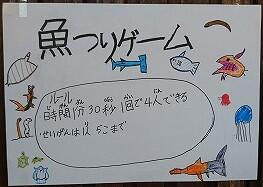 魚つりゲーム
ルール
時間1分30秒 1回で4人できる
せいげんは1人5こまで